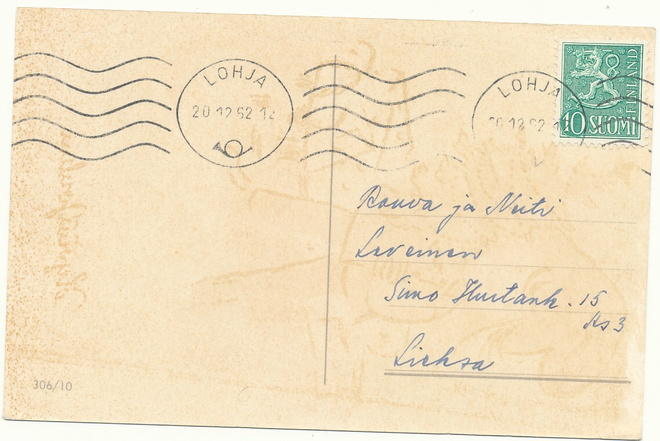 LOHJA
20.12.62.12
LOHJA
20.12.62.1
FINLAND
10 SUOMI
Rouva ja Neiti
Leveinen
Simo Hurtank. 15
As 3
Lieksa
306/10